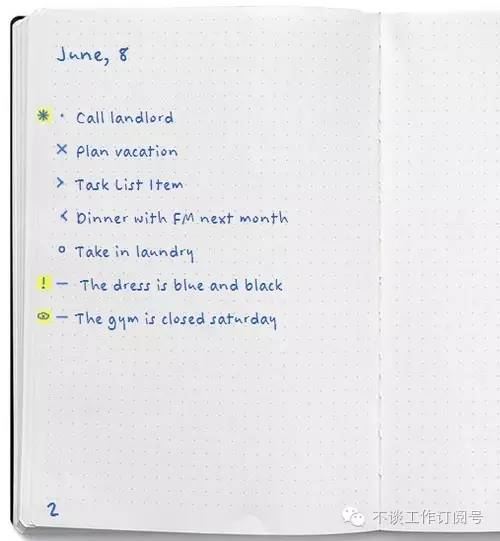 June, 8
* · Call landlord
× Plan vacation
> Task List Item
< Dinner with FM next month
o Take in laundry
! — The dress is blue and black
— The gym is closed saturday
2
不谈工作订阅号